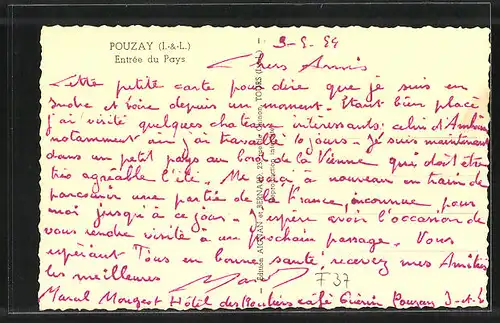 POUZAY (I.-&-L.)
Entrée du Pays
3-5-54
Chers Amis
Cette petite carte pour dire que je suis en
Indre et Loire depuis un moment. Etant bien placé
j'ai visité quelques chateaux intéressants. celui d'Amboise
notamment où j'ai travaillé 10 jours. Je suis maintenant
dans un petit pays au bord de la Vienne qui doit être
très agréable l'été. Me voici à nouveau en train de
parcourir une partie de la France, inconnue pour
moi jusqu'à ce jour. J'espère avoir l'occasion de
vous rendre visite à un prochain passage. Vous
espérant Tous en bonne santé recevez mes Amitiés
les meilleures
Marcel Hôtel des Routiers café Guérin Pouzay I-et-L
F37
TOURS